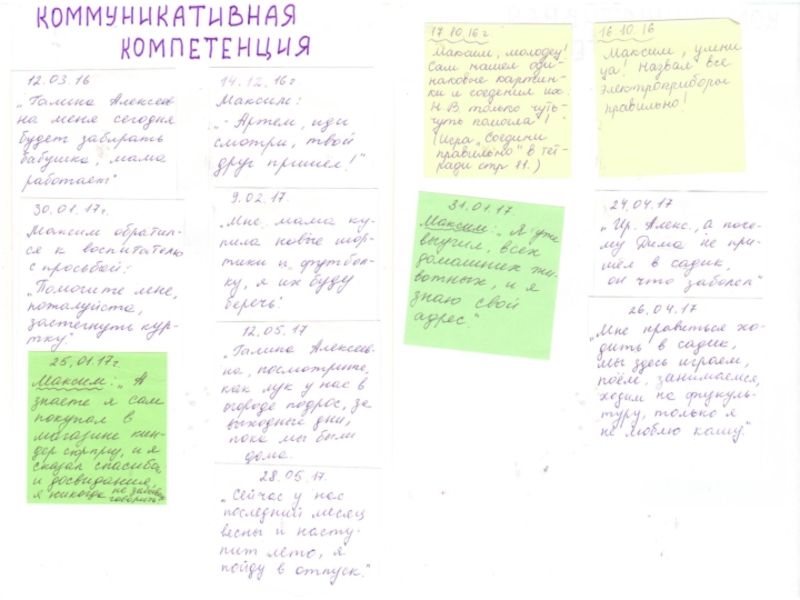 КОММУНИКАТИВНАЯ
КОМПЕТЕНЦИЯ
12.03.16
„Галина Алексеев-
на меня сегодня
будет забирать
бабушка, мама
работает"
30.01.17г.
Максим обратил-
ся к воспитателю
с просьбой:
„Помогите мне,
пожалуйста,
застегнуть кур-
тку."
25.01.17г.
Максим: „А
знаете я сам
покупал в
магазине кин-
дер сюрприз, и я
сказал спасибо
и досвидания,
я никогда не забываю
говорить"
14.12.16г
Максим:
„- Артем, иди
смотри, твой
друг пришел!"
9.02.17.
„Мне мама ку-
пила новые шор-
тики и футбол-
ку, я их буду
беречь"
12.05.17
„Галина Алексеев-
на, посмотрите,
как лук у нас в
огороде подрос, за
выходные дни,
пока мы были
дома.
28.05.17.
„Сейчас у нас
последний месяц
весны и насту-
пит лето, я
пойду в отпуск."
17.10.16г
Максим, молодец!
Сам нашел оди-
наковые картин-
ки и соединил их.
Н.В. только чуть-
чуть помогла!
(Игра „Соедини
правильно" в тет-
ради стр 11.)
16.10.16
Максим, умни
ца! Назвал все
электроприборы
правильно!
31.01.17.
Максим: „Я уже
выучил, всех
домашних жи-
вотных, и я
знаю свой
адрес."
24.04.17
„Ир. Алекс., а поче-
му Дима не при-
шел в садик,
он что заболел"
26.04.17
„Мне нравиться хо-
дить в садик,
мы здесь играем,
поём, занимаемся,
ходим на физкуль-
туру, только я
не люблю кашу."